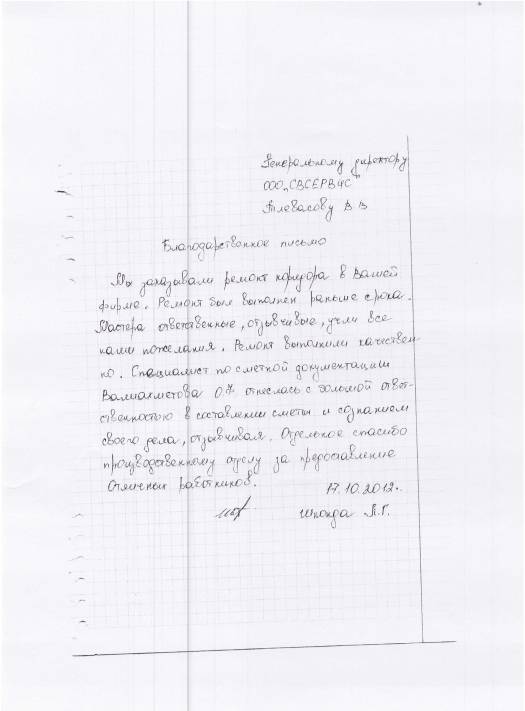 Генеральному директору
ООО „СВСЕРВИС"
Тлевасову В В
Благодарственное письмо
Мы заказывали ремонт коридора в Вашей
фирме. Ремонт был выполнен раньше срока.
Мастера ответственные, отзывчивые, учли все
наши пожелания. Ремонт выполнили качествен-
но. Специалист по сметной документации
Валиахметова О.Т отнеслась с большой ответ-
ственностью в составлении сметы и сознанием
своего дела, отзывчивая. Отдельное спасибо
производственному отделу за предоставление
отличных работников.
17.10.2012г.
Шпонда Л.Г.